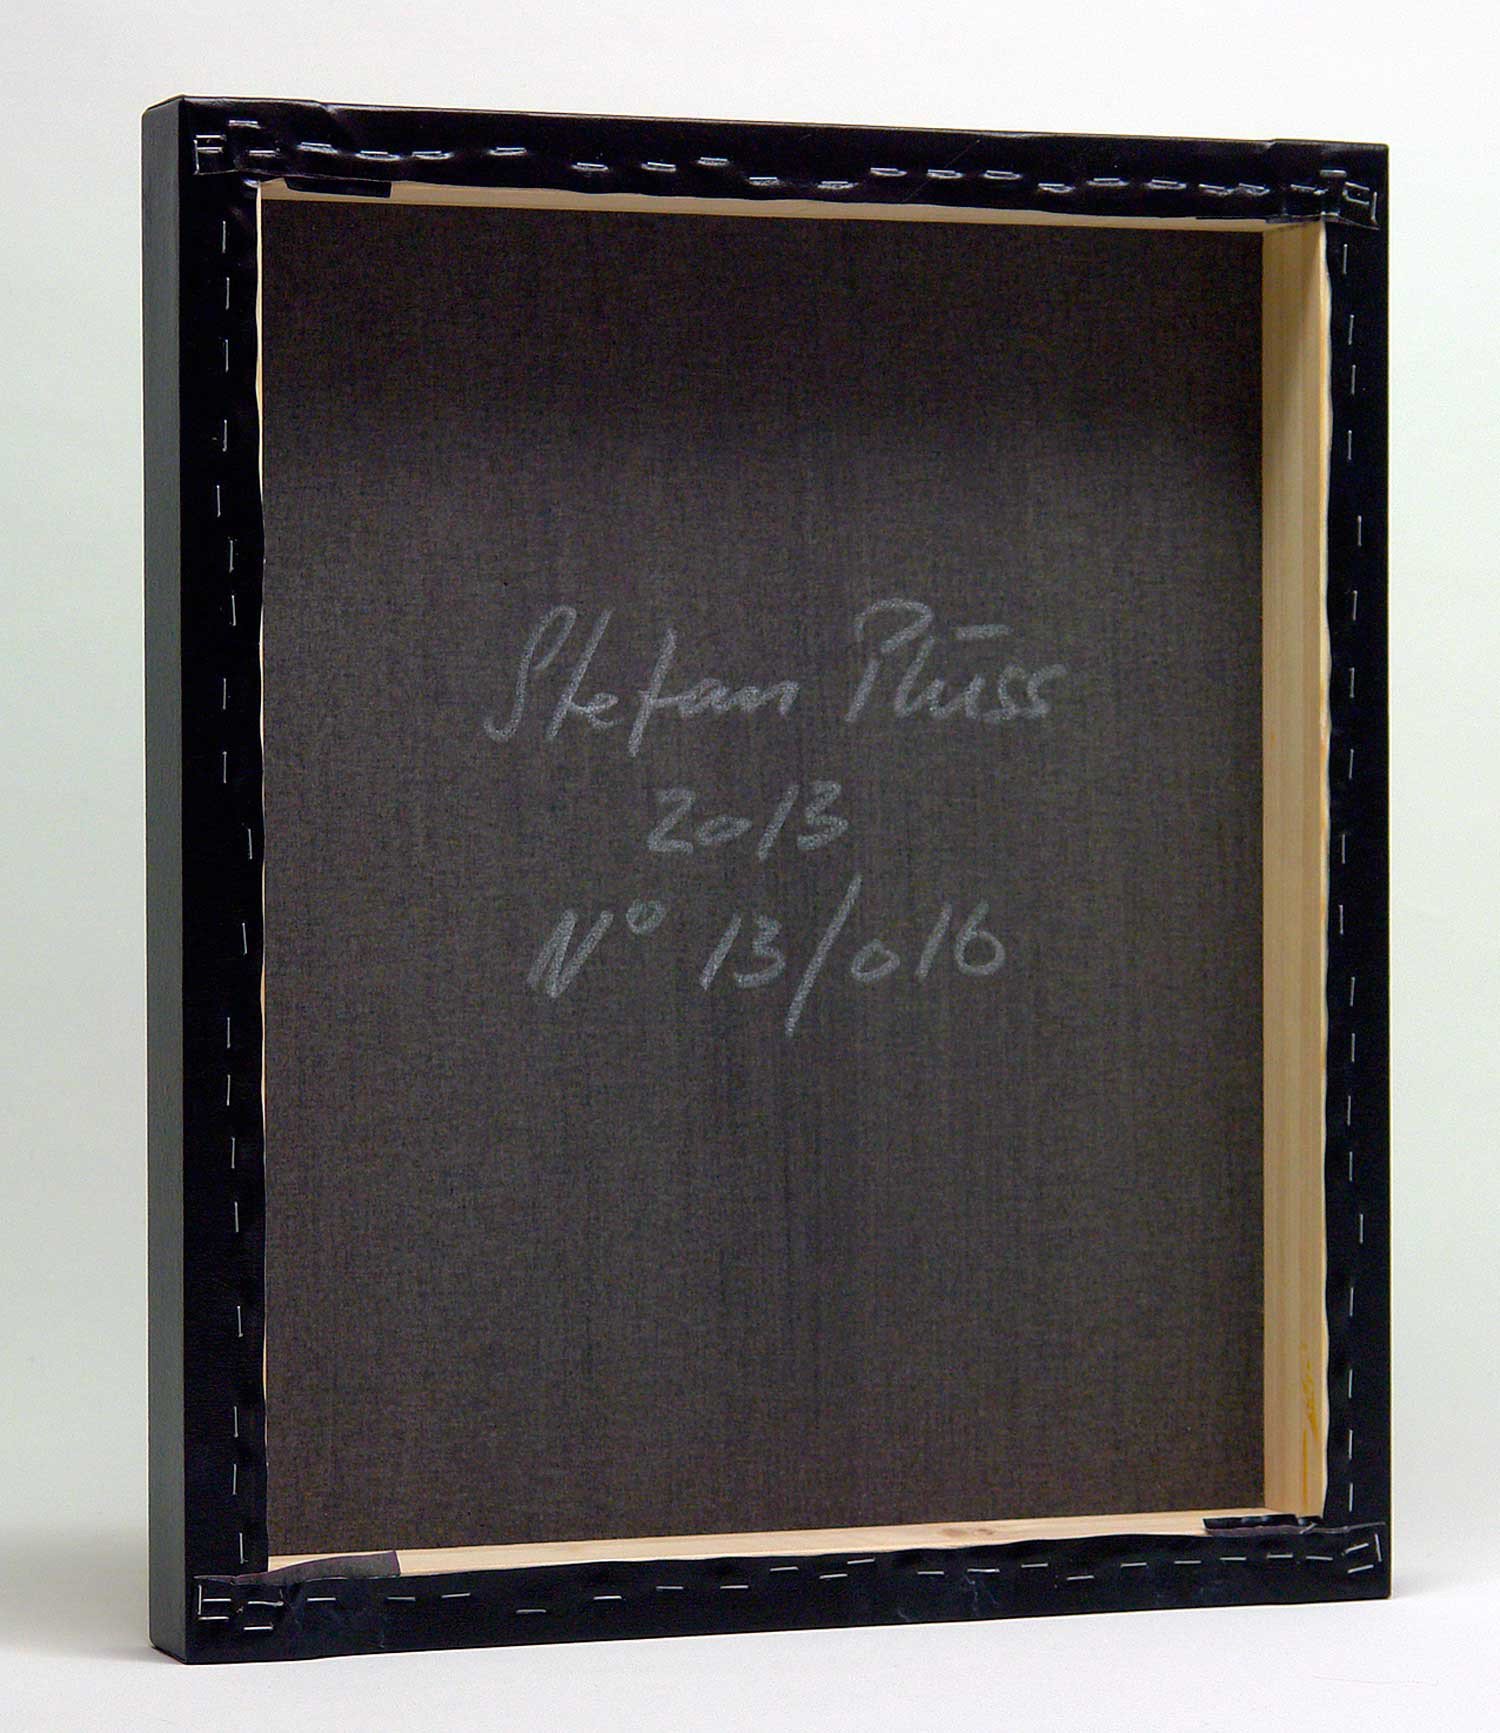 Stefan Plüss
2013
Nº 13/016